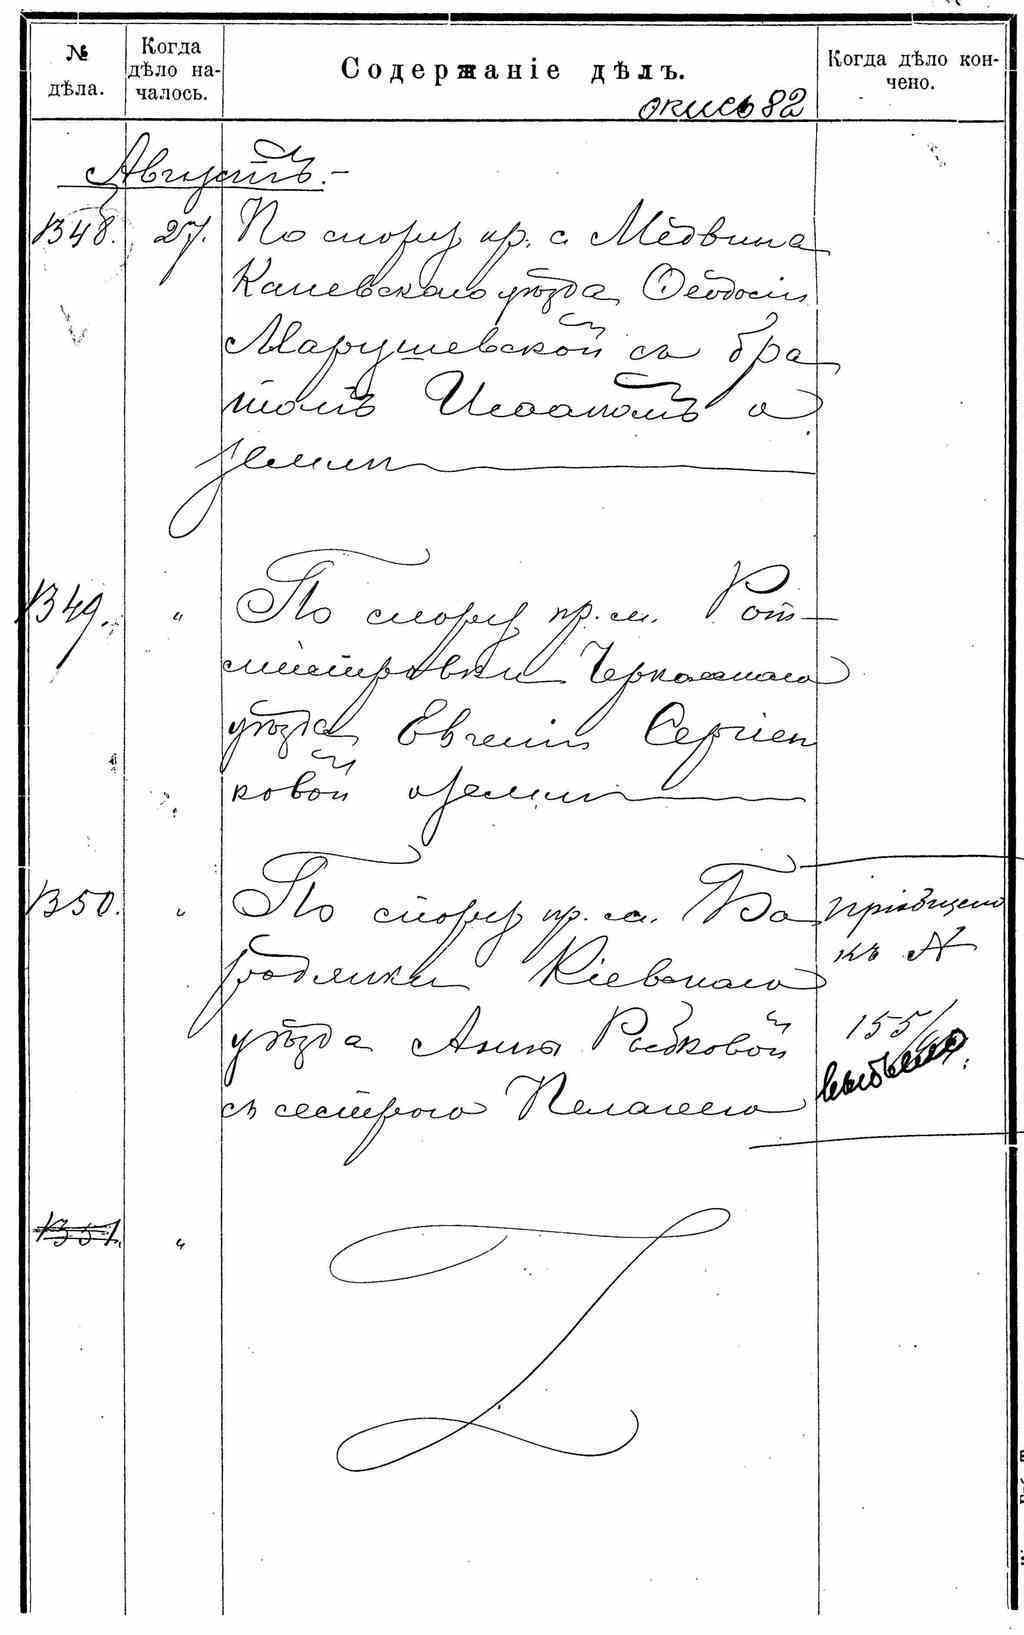 № дѣла.
Когда дѣло началось.
Содержаніе дѣлъ.
Когда дѣло кончено.
опись 82
Августъ.-
1348. 27. По спору кр. с. Медвина
Каневскаго уѣзда Ѳеодосіи
Марушевской съ бра
томъ Исаакомъ о
земли
1349. " По спору кр. м. Рот-
мистровки Черкасскаго
уѣзда Евгеніи Сергіен
ковой о земли
1350. " По спору кр. м. Бо
родянки Кіевскаго
уѣзда Анны Рыбковой
съ сестрою Пелагеею
Пріобщено
къ №
155/
выбыло
1351. "